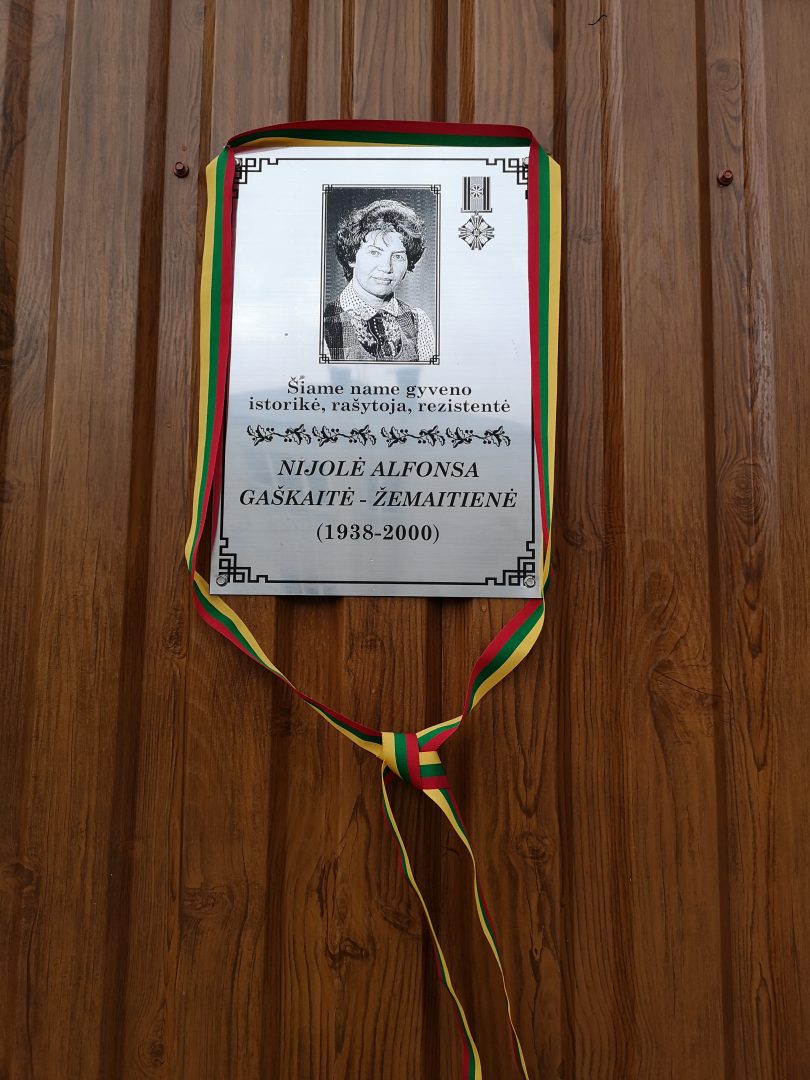 Šiame name gyveno
istorikė, rašytoja, rezistentė
NIJOLĖ ALFONSA
GAŠKAITĖ - ŽEMAITIENĖ
(1938-2000)